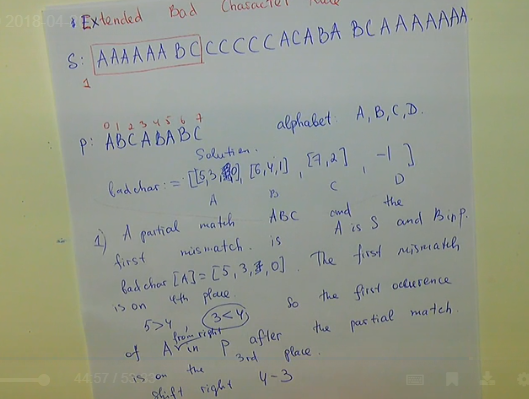 2018-04-
Extended Bad Character Rule
S: AAAAAABCCCCCCACABABCAAAAAAA
1
0 1 2 3 4 5 6 7
P: ABCABABC
alphabet A, B, C, D.
Solution.
badchar := [[5,3,0], [6,4,1], [7,2], -1]
A B C D
1) A partial match ABC and the
first mismatch is A is S and B in P.
badchar [A] = [5, 3, 0]. The first mismatch
is on 4th place
5>4, 3<4 so the first occurence
from right
of A in P after the partial match
is on the 3rd place.
shift right 4-3
44:57 / 53:53